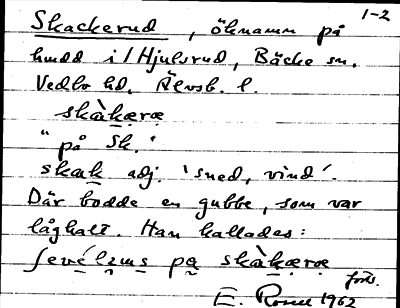 1-2
Skackerud, öknamn på
hmd i / Hjulsrud, Bäcke sn.
Vedbo hd. Älvsb. l.
skàkæræ
"på Sk."
skak adj. 'sned, vind'.
Där bodde en gubbe, som var
låghalt. Han kallades:
pa skàkæræ
forts.
E. 1962